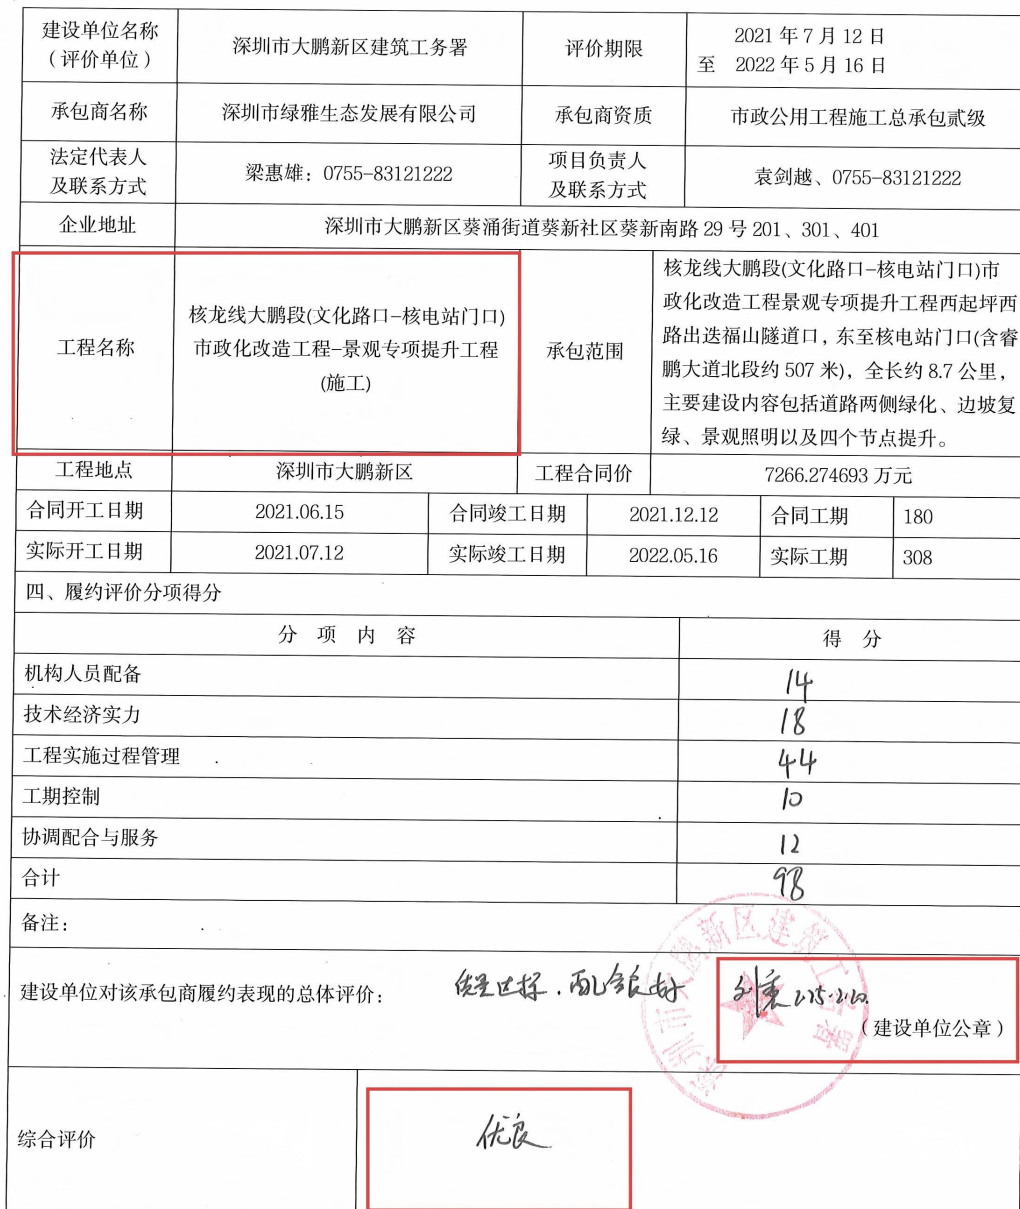 建设单位名称
（评价单位）
深圳市大鹏新区建筑工务署
评价期限
2021 年 7 月 12 日
至 2022 年 5 月 16 日
承包商名称
深圳市绿雅生态发展有限公司
承包商资质
市政公用工程施工总承包贰级
法定代表人
及联系方式
梁惠雄：0755-83121222
项目负责人
及联系方式
袁剑越、0755-83121222
企业地址
深圳市大鹏新区葵涌街道葵新社区葵新南路 29 号 201、301、401
工程名称
核龙线大鹏段(文化路口-核电站门口)
市政化改造工程-景观专项提升工程
(施工)
承包范围
核龙线大鹏段(文化路口-核电站门口)市
政化改造工程景观专项提升工程西起坪西
路出迭福山隧道口，东至核电站门口(含睿
鹏大道北段约 507 米)，全长约 8.7 公里，
主要建设内容包括道路两侧绿化、边坡复
绿、景观照明以及四个节点提升。
工程地点
深圳市大鹏新区
工程合同价
7266.274693 万元
合同开工日期
2021.06.15
合同竣工日期
2021.12.12
合同工期
180
实际开工日期
2021.07.12
实际竣工日期
2022.05.16
实际工期
308
四、履约评价分项得分
分 项 内 容
得 分
机构人员配备
14
技术经济实力
18
工程实施过程管理
44
工期控制
10
协调配合与服务
12
合计
98
备注：
建设单位对该承包商履约表现的总体评价：
达标，配合良好
（建设单位公章）
深圳市大鹏新区建筑工务署
综合评价
优良